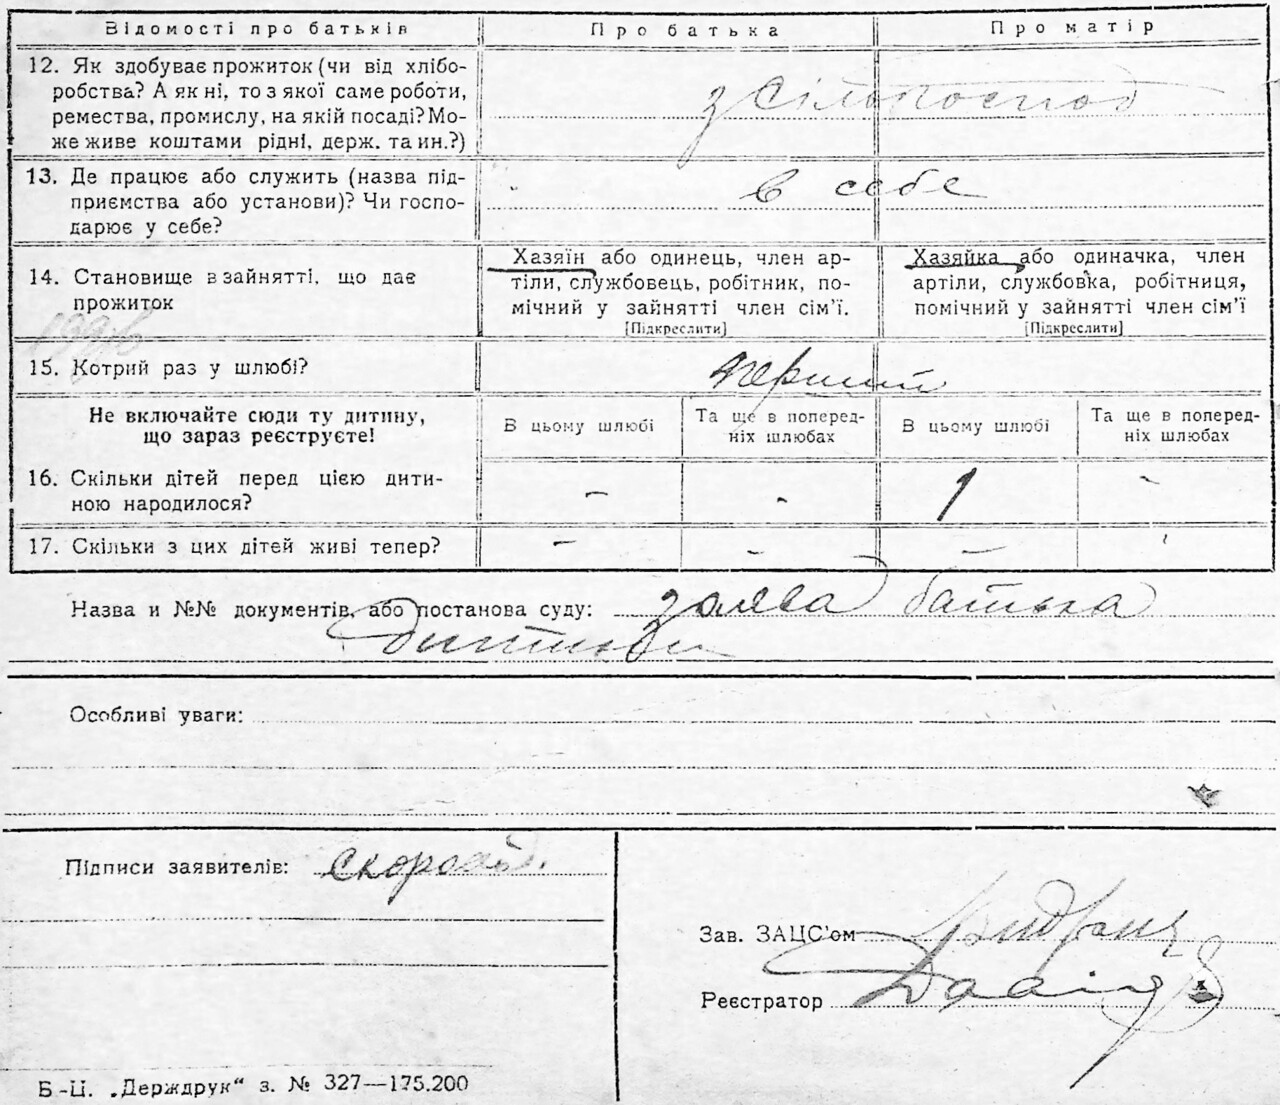 Відомості про батьків Про батька Про матір
12. Як здобуває прожиток (чи від хлібо-
робства? А як ні, то з якої саме роботи,
ремества, промислу, на якій посаді? Мо-
же живе коштами рідні, держ. та ин.?)
з сільського
13. Де працює або служить (назва під-
приємства або установи)? Чи госпо-
дарює у себе?
в себе
14. Становище в зайнятті, що дає
прожиток
Хазяїн або одинець, член ар-
тіли, службовець, робітник, по-
мічний у зайнятті член сім'ї.
[Підкреслити]
Хазяйка або одиначка, член
артіли, службовка, робітниця,
помічний у зайнятті член сім'ї
[Підкреслити]
15. Котрий раз у шлюбі? перший
Не включайте сюди ту дитину,
що зараз реєструєте!
В цьому шлюбі
Та ще в поперед-
ніх шлюбах
В цьому шлюбі
Та ще в поперед-
ніх шлюбах
16. Скільки дітей перед цією дити-
ною народилося?
- - 1 -
17. Скільки з цих дітей живі тепер? - - -
Назва и №№ документів, або постанова суду: заява батька
дитини
Особливі уваги:
Підписи заявителів:
Зав. ЗАЦС'ом
Реєстратор
Б-Ц. „Держдрук“ з. № 327—175.200